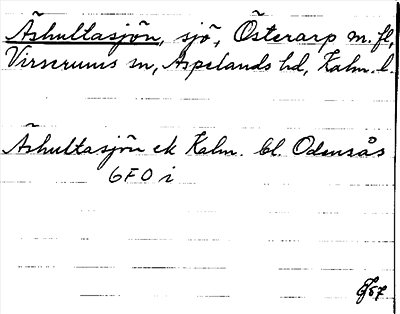 Äshultasjön, sjö, Österarp m. fl,
Virserums sn, Aspelands hd, Kalm. l.
Äshultasjön ek Kalm. bl. Odensås
6F0i
57